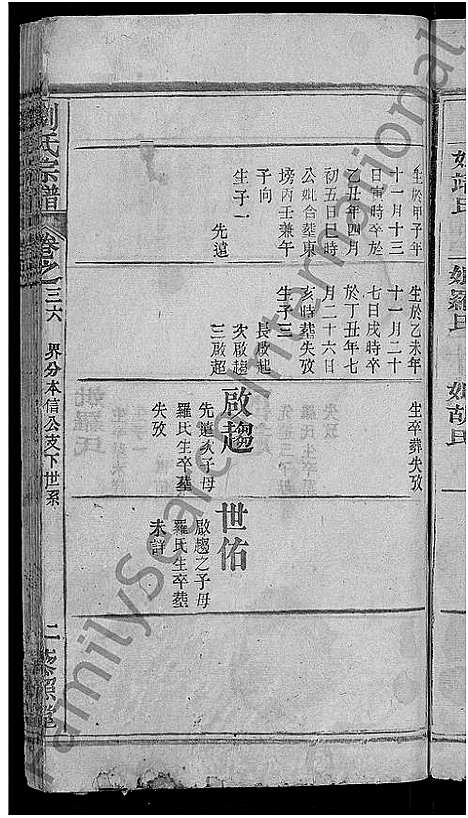 妣龍氏
妣羅氏
妣胡氏
生於甲子年
十一月十三
日寅時卒於
乙丑年四月
初五日巳時
公妣合葬東
塝丙壬兼午
子向
生子一
先遠
生於乙未年
十一月二十
七日戌時卒
於丁丑年七
月二十六日
亥時葬失攷
生子三
長啟起
次啟趨
三啟超
生卒葬失攷
啟趨
先遠次子母
羅氏生卒葬
失攷
世佑
啟趨之子母
羅氏生卒葬
未詳
劉氏宗譜
卷之三六
界分本信公支下世系
二
藜照堂
FamilySearch International